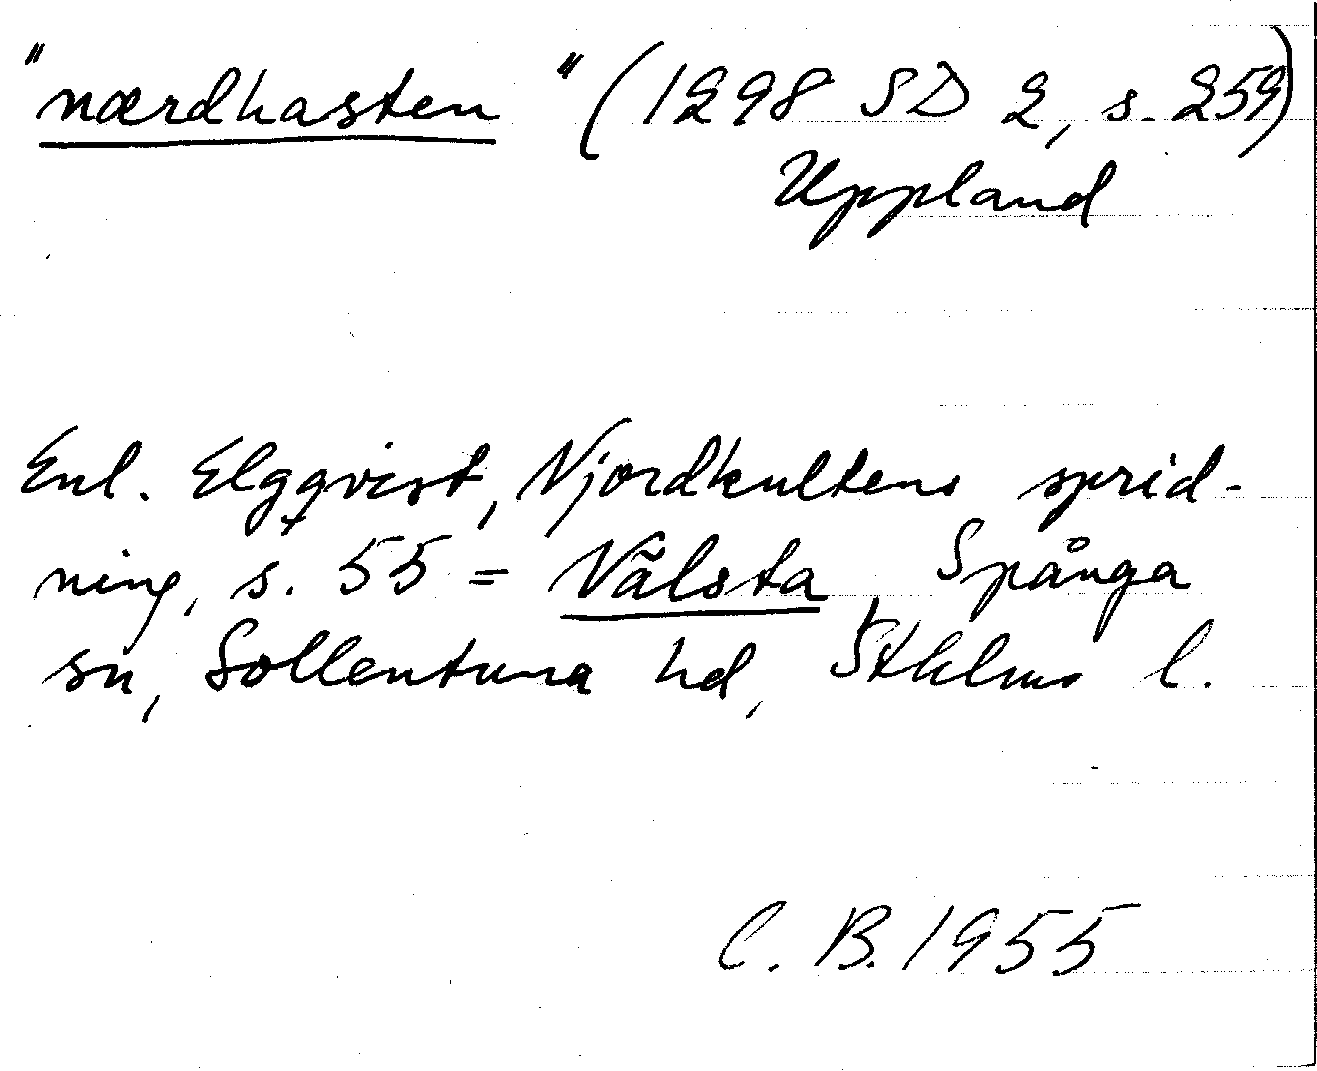 "nærdhasten" (1298 SD 2, s. 259)
Uppland
Enl. Elgqvist, Njordkultens sprid-
ning, s. 55 = Nälsta, Spånga
sn, Sollentuna hd, Sthlms l.
C. B. 1955